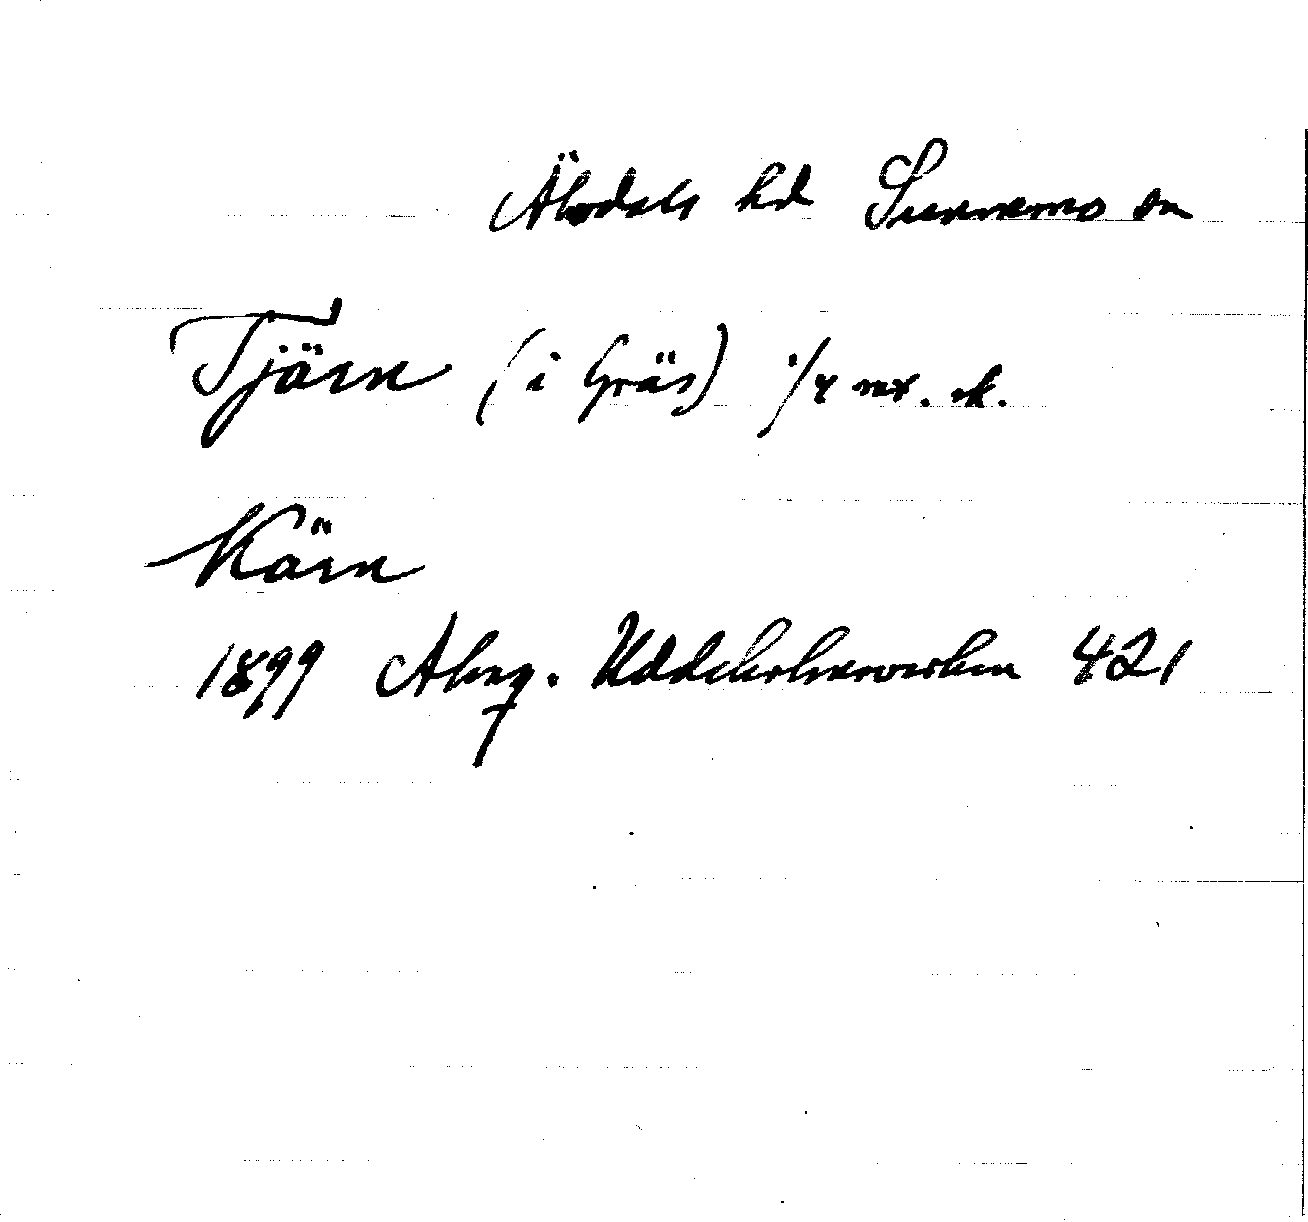 Älvdals hd Sunnemo sn
Tjärn (i Gräs) 1/4 mt. sk.
Kärn
1899 Alving. Uddeholmsverken 421